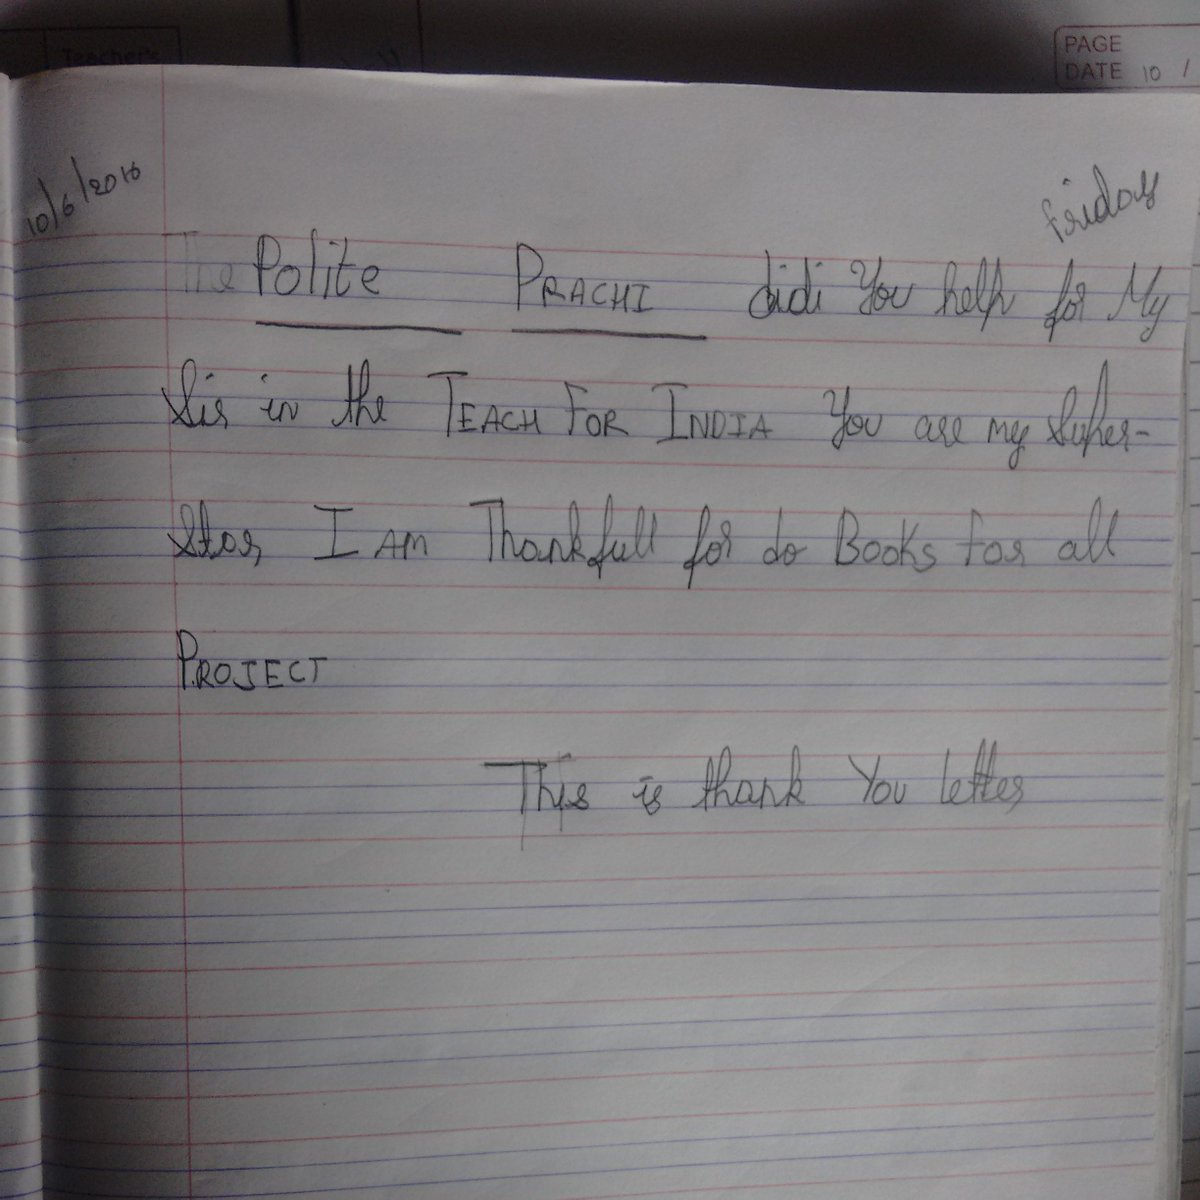 Teacher's
PAGE
DATE 10 /
10/6/2016
friday
The Polite PRACHI didi You help for My
Sis in the TEACH FOR INDIA You are my Super-
Star, I AM Thankfull for do Books For all
PROJECT
This is thank You letter